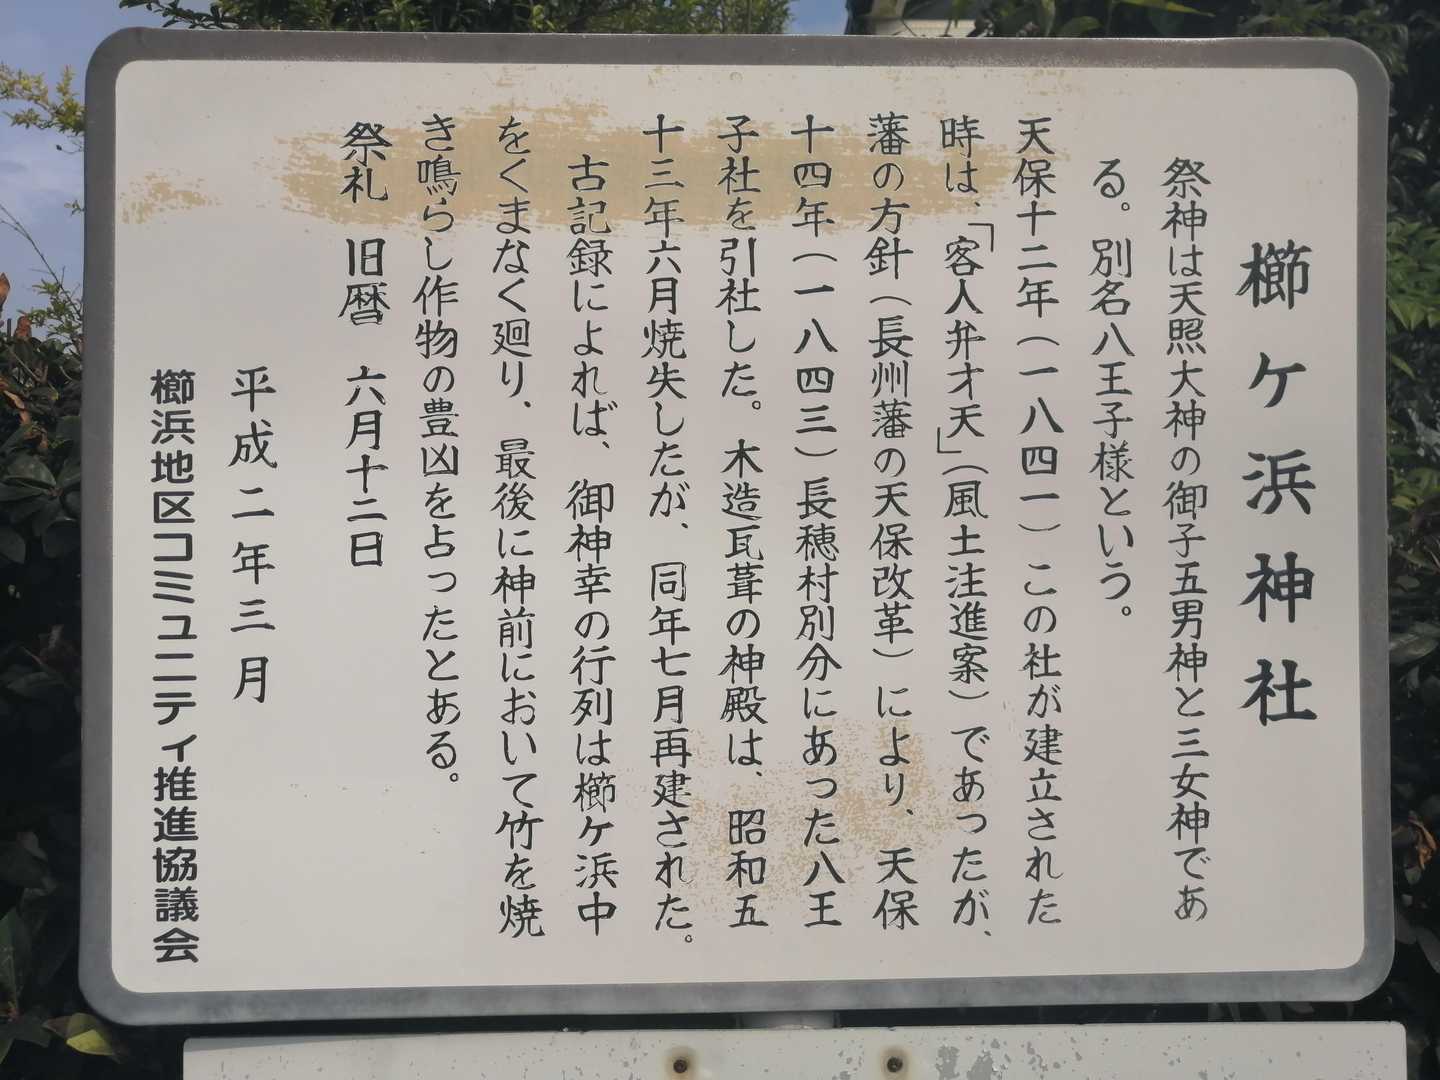 櫛ケ浜神社
祭神は天照大神の御子五男神と三女神であ
る。別名八王子様という。
天保十二年(一八四一)この社が建立された
時は、「客人弁才天」(風土注進案)であったが、
藩の方針(長州藩の天保改革)により、天保
十四年(一八四三)長穂村別分にあった八王
子社を引社した。木造瓦葺の神殿は、昭和五
十三年六月焼失したが、同年七月再建された。
古記録によれば、御神幸の行列は櫛ケ浜中
をくまなく廻り、最後に神前において竹を焼
き鳴らし作物の豊凶を占ったとある。
祭礼 旧暦 六月十二日
平成二年三月
櫛浜地区コミュニティ推進協議会